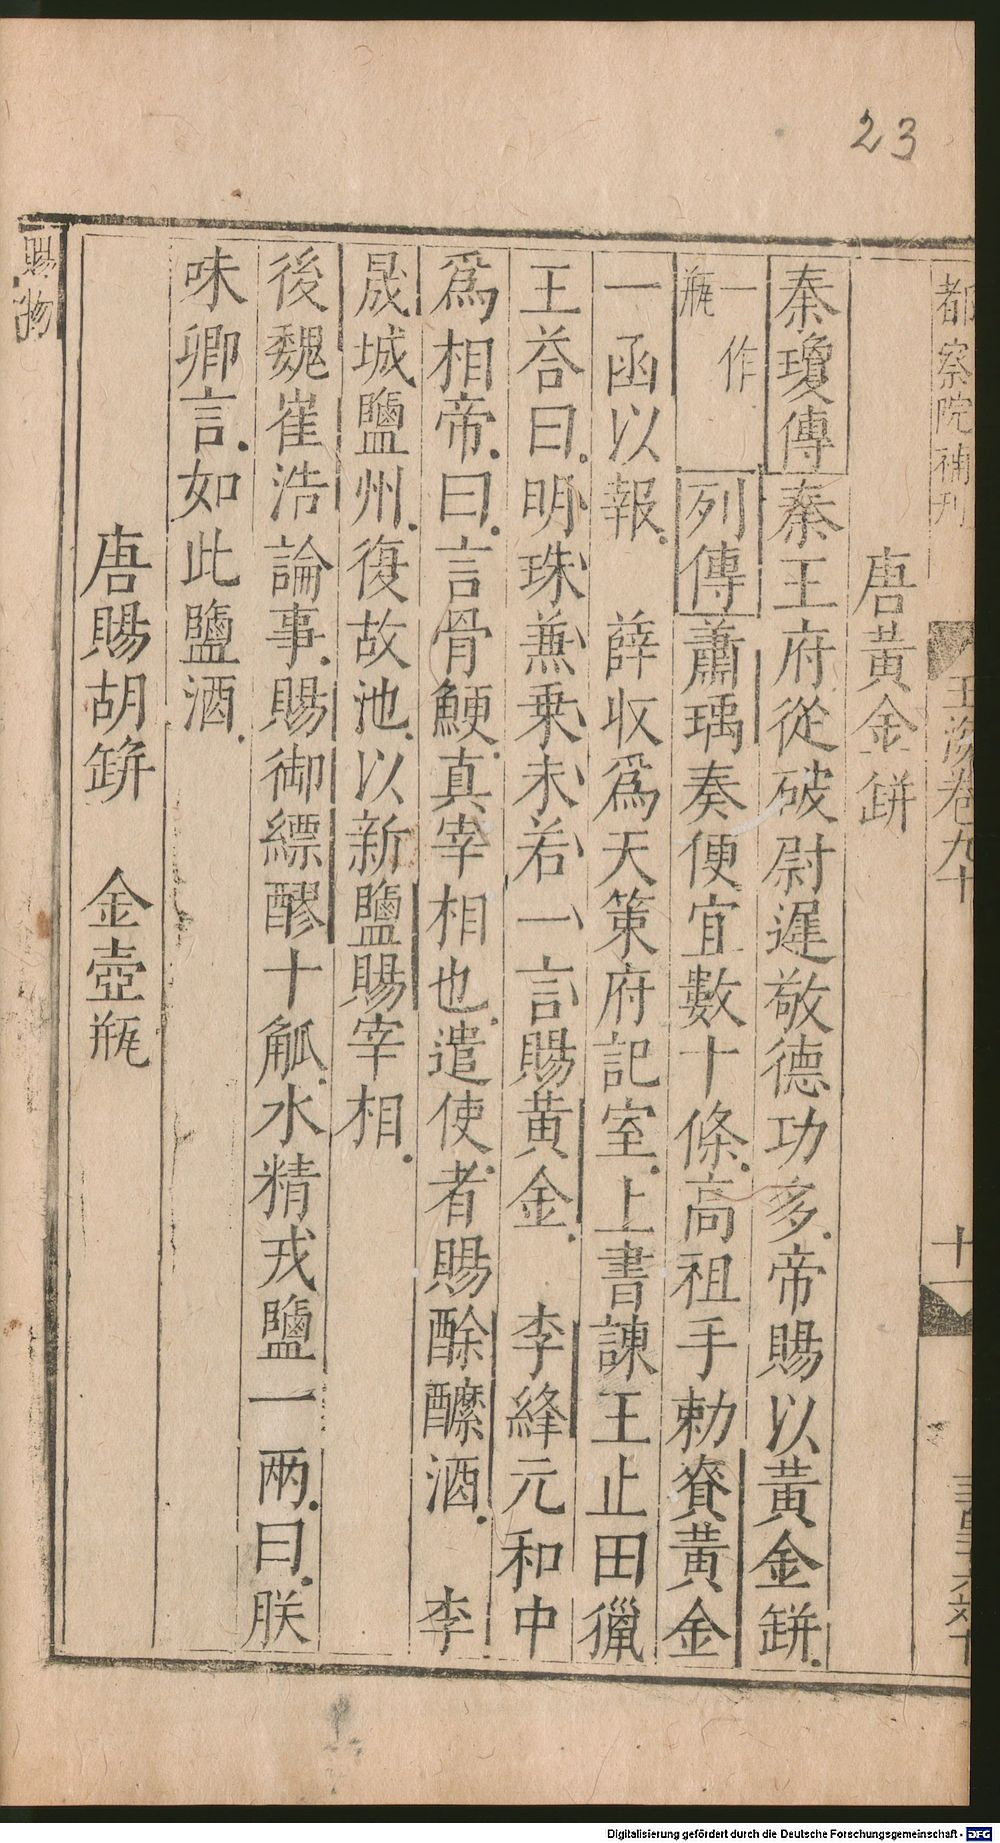 23
都察院補刋
玉海卷九十
十一
唐黄金缾
秦瓊傳秦王府從破尉遲敬德功多帝賜以黄金缾
一作瓶
列傳蕭瑀奏便宜數十條高祖手勅賚黄金
一函以報 薛收爲天策府記室上書諫王止田獵
王荅曰明珠兼乗未若一言賜黄金 李絳元和中
爲相帝曰言骨鯁真宰相也遣使者賜酴醾酒 李
晟城鹽州復故池以新鹽賜宰相
後魏崔浩論事賜御縹醪十觚水精戎鹽一兩曰朕
味卿言如此鹽酒
唐賜胡缾 金壺瓶
賜物
Digitalisierung gefördert durch die Deutsche Forschungsgemeinschaft - DFG